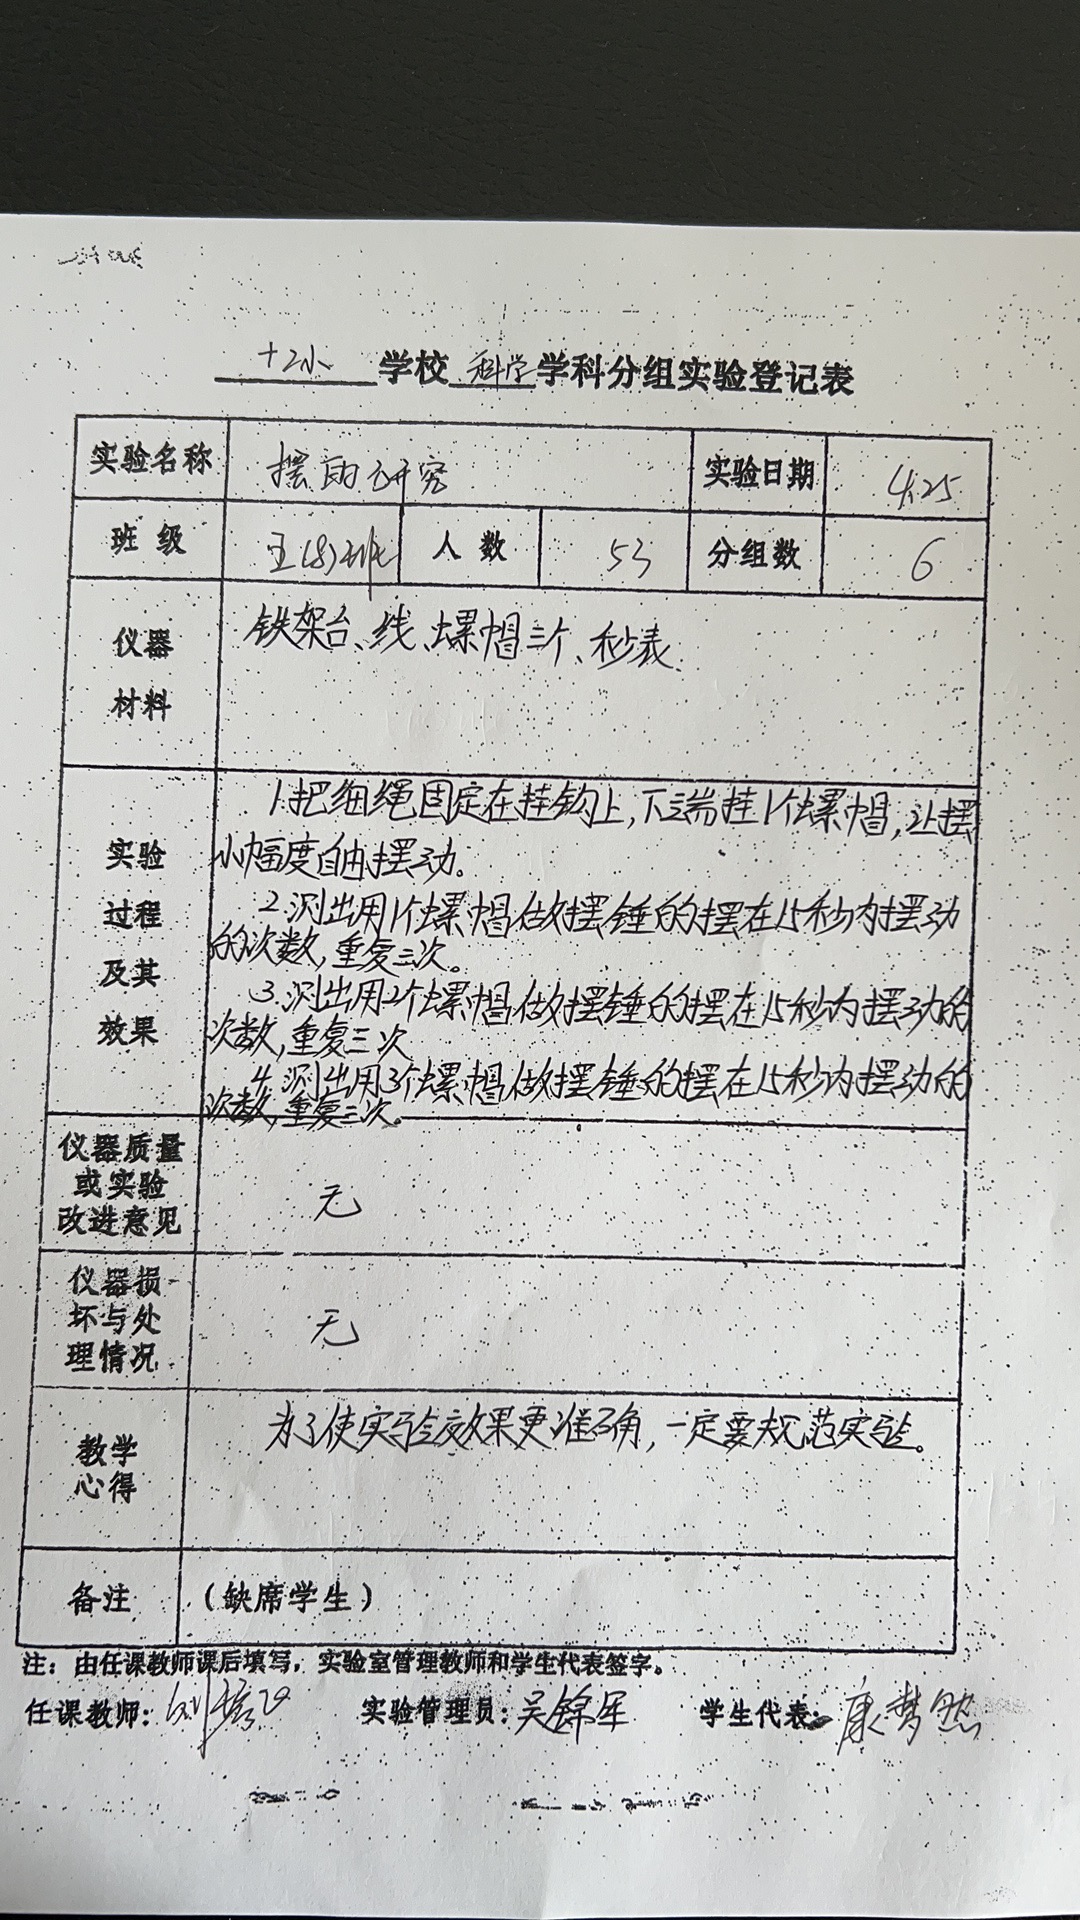 十二小学校科学学科分组实验登记表
实验名称 摆的研究 实验日期 4.25
班级 五(8)班 人数 53 分组数 6
仪器
材料
铁架台、线、螺帽三个、秒表
实验
过程
及其
效果
1.把细绳固定在挂钩上,下端挂1个螺帽,让摆
小幅度自由摆动。
2.测出用1个螺帽做摆锤的摆在15秒内摆动
的次数,重复三次。
3.测出用2个螺帽做摆锤的摆在15秒内摆动的
次数,重复三次
4.测出用3个螺帽做摆锤的摆在15秒内摆动的
次数,重复三次。
仪器质量
或实验
改进意见
无
仪器损
坏与处
理情况
无
教学
心得
为了使实验效果更准确,一定要规范实验。
备注 (缺席学生)
注:由任课教师课后填写,实验室管理教师和学生代表签字。
任课教师:刘 实验管理员:吴锦军 学生代表:康梦然